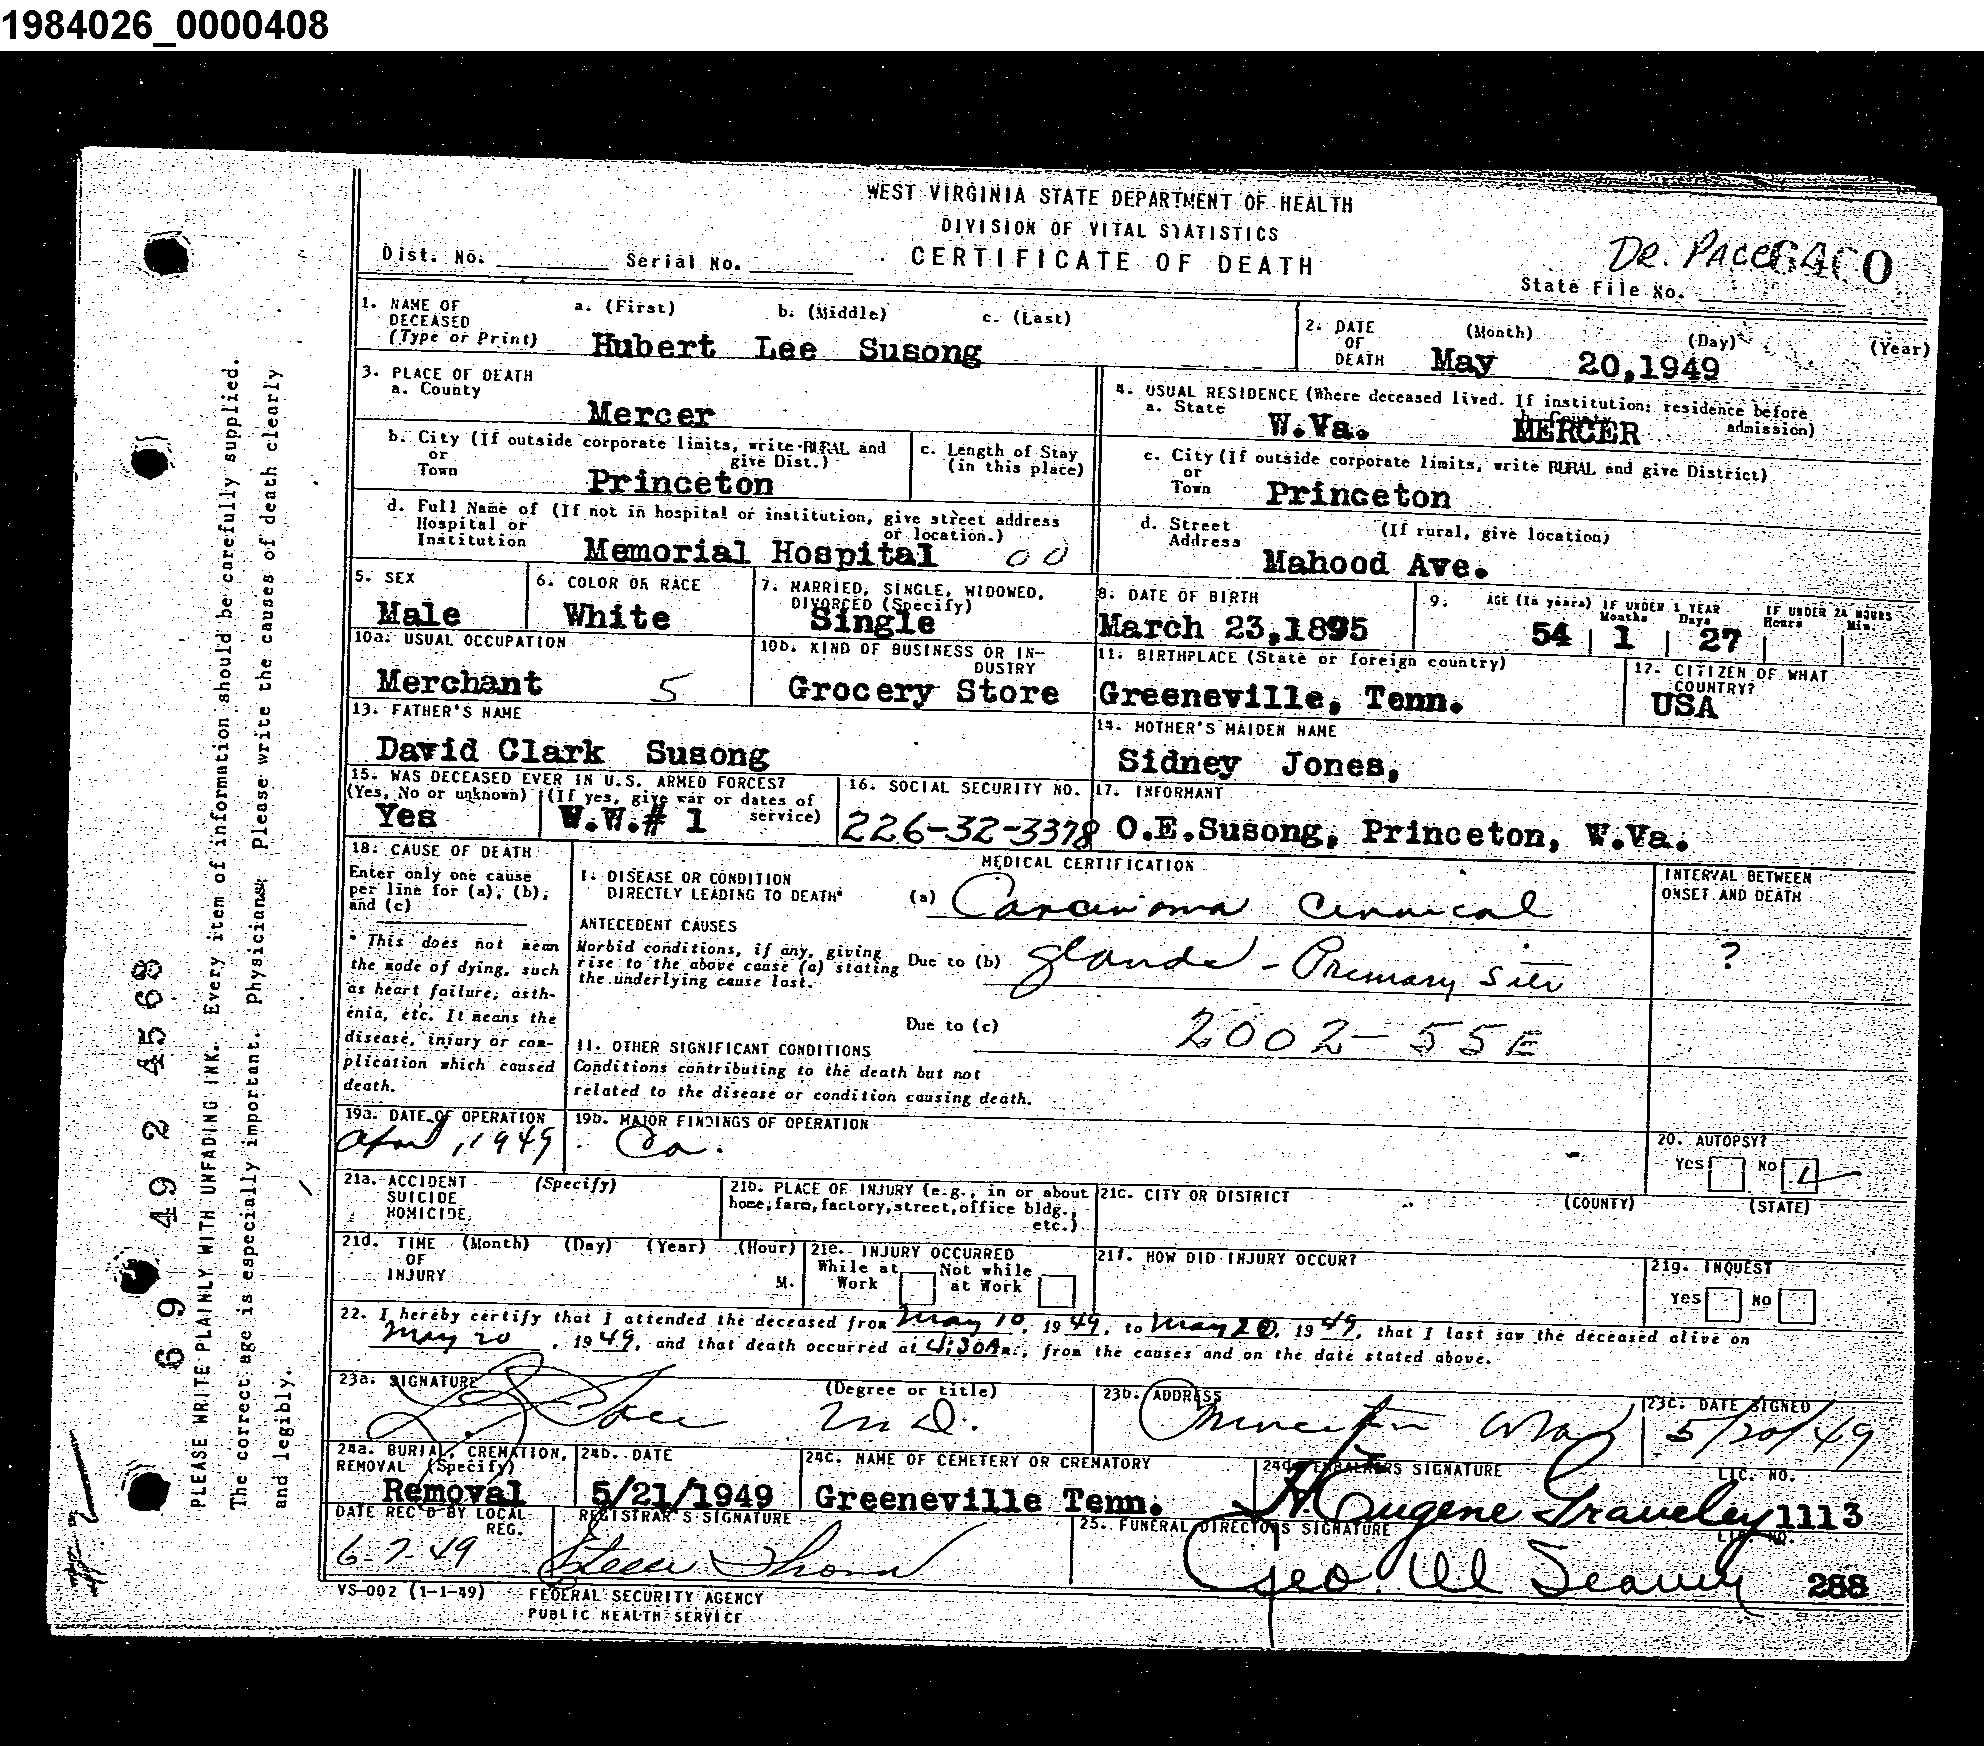 1984026_0000408
WEST VIRGINIA STATE DEPARTMENT OF HEALTH
DIVISION OF VITAL STATISTICS
Dist. No. Serial No. CERTIFICATE OF DEATH
DR. PACE
State File No.
1. NAME OF DECEASED (Type or Print) a. (First) b. (Middle) c. (Last)
Hubert Lee Susong
2. DATE OF DEATH (Month) (Day) (Year)
May 20,1949
3. PLACE OF DEATH
a. County
Mercer
4. USUAL RESIDENCE (Where deceased lived. If institution: residence before admission)
a. State W.Va. b. County MERCER
b. City (If outside corporate limits, write RURAL and give Dist.)
or Town
Princeton
c. Length of Stay (in this place)
c. City (If outside corporate limits, write RURAL and give District)
or Town Princeton
d. Full Name of (If not in hospital or institution, give street address or location.)
Hospital or Institution
Memorial Hospital 00
d. Street Address (If rural, give location)
Mahood Ave.
5. SEX
Male
6. COLOR OR RACE
White
7. MARRIED, SINGLE, WIDOWED, DIVORCED (Specify)
Single
8. DATE OF BIRTH
March 23,1895
9. AGE (In years) IF UNDER 1 YEAR Months Days IF UNDER 24 HOURS Hours Min.
54 1 27
10a. USUAL OCCUPATION
Merchant 5
10b. KIND OF BUSINESS OR INDUSTRY
Grocery Store
11. BIRTHPLACE (State or foreign country)
Greeneville, Tenn.
12. CITIZEN OF WHAT COUNTRY?
USA
13. FATHER'S NAME
David Clark Susong
14. MOTHER'S MAIDEN NAME
Sidney Jones,
15. WAS DECEASED EVER IN U.S. ARMED FORCES?
(Yes, No or unknown) (If yes, give war or dates of service)
Yes W.W.# 1
16. SOCIAL SECURITY NO.
226-32-3378
17. INFORMANT
O.E.Susong, Princeton, W.Va.
18. CAUSE OF DEATH
Enter only one cause per line for (a), (b), and (c)
* This does not mean the mode of dying, such as heart failure, asthenia, etc. It means the disease, injury or complication which caused death.
MEDICAL CERTIFICATION
INTERVAL BETWEEN ONSET AND DEATH
I. DISEASE OR CONDITION DIRECTLY LEADING TO DEATH* (a) Carcinoma Cervical
ANTECEDENT CAUSES
Morbid conditions, if any, giving rise to the above cause (a) stating the underlying cause last.
Due to (b) glands - Primary Site ?
Due to (c) 2002-55E
II. OTHER SIGNIFICANT CONDITIONS
Conditions contributing to the death but not related to the disease or condition causing death.
19a. DATE OF OPERATION
April, 1949
19b. MAJOR FINDINGS OF OPERATION
Ca.
20. AUTOPSY?
Yes No
21a. ACCIDENT SUICIDE HOMICIDE (Specify)
21b. PLACE OF INJURY (e.g., in or about home, farm, factory, street, office bldg., etc.)
21c. CITY OR DISTRICT (COUNTY) (STATE)
21d. TIME OF INJURY (Month) (Day) (Year) (Hour) M.
21e. INJURY OCCURRED
While at Work Not while at Work
21f. HOW DID INJURY OCCUR?
21g. INQUEST
Yes No
22. I hereby certify that I attended the deceased from May 10, 1949, to May 20, 1949, that I last saw the deceased alive on
May 20, 1949, and that death occurred at 4:30A m., from the causes and on the date stated above.
23a. SIGNATURE (Degree or title)
Pace M.D.
23b. ADDRESS
Princeton W Va
23c. DATE SIGNED
5/20/49
24a. BURIAL, CREMATION, REMOVAL (Specify)
Removal
24b. DATE
5/21/1949
24c. NAME OF CEMETERY OR CREMATORY
Greeneville Tenn.
24d. EMBALMERS SIGNATURE LIC. NO.
H. Eugene Graveley 1113
DATE REC'D BY LOCAL REG.
6-7-49
REGISTRAR'S SIGNATURE
25. FUNERAL DIRECTORS SIGNATURE LIC. NO.
Geo. W Seaver 288
VS-002 (1-1-49) FEDERAL SECURITY AGENCY
PUBLIC HEALTH SERVICE
PLEASE WRITE PLAINLY WITH UNFADING INK. Every item of information should be carefully supplied.
The correct age is especially important. Physicians: Please write the causes of death clearly
and legibly.
6 9 49 2 4568